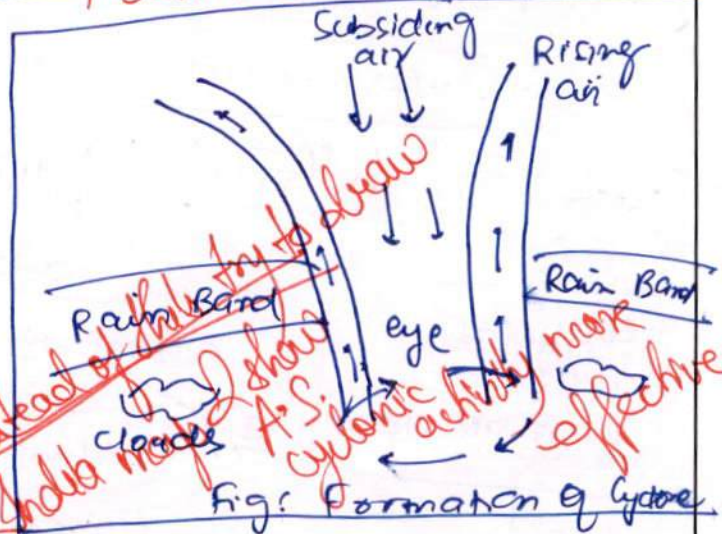 Subsiding
air
Rising
air
Rain Band
eye
Rain Band
Clouds
Fig: Formation of Cyclone
Instead of this try to draw
India map & show
A.S. cyclonic activity more
effective